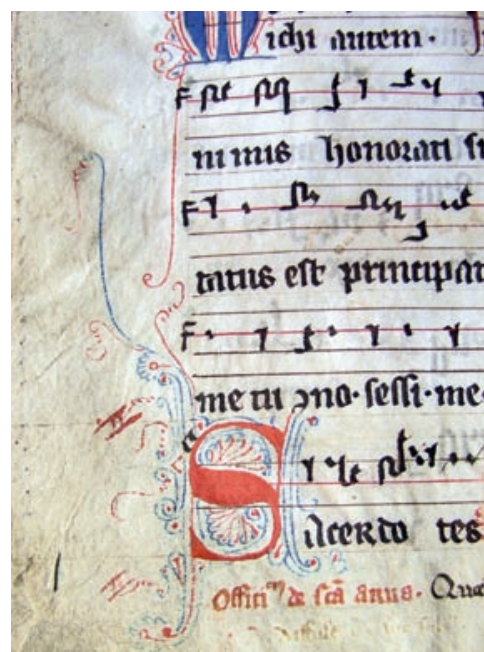 Michi autem ·
nimis honorati su
tatus est principat
me tu ɔno·sessi·me
Sacerdo tes
Offitiū de scā anna. Que